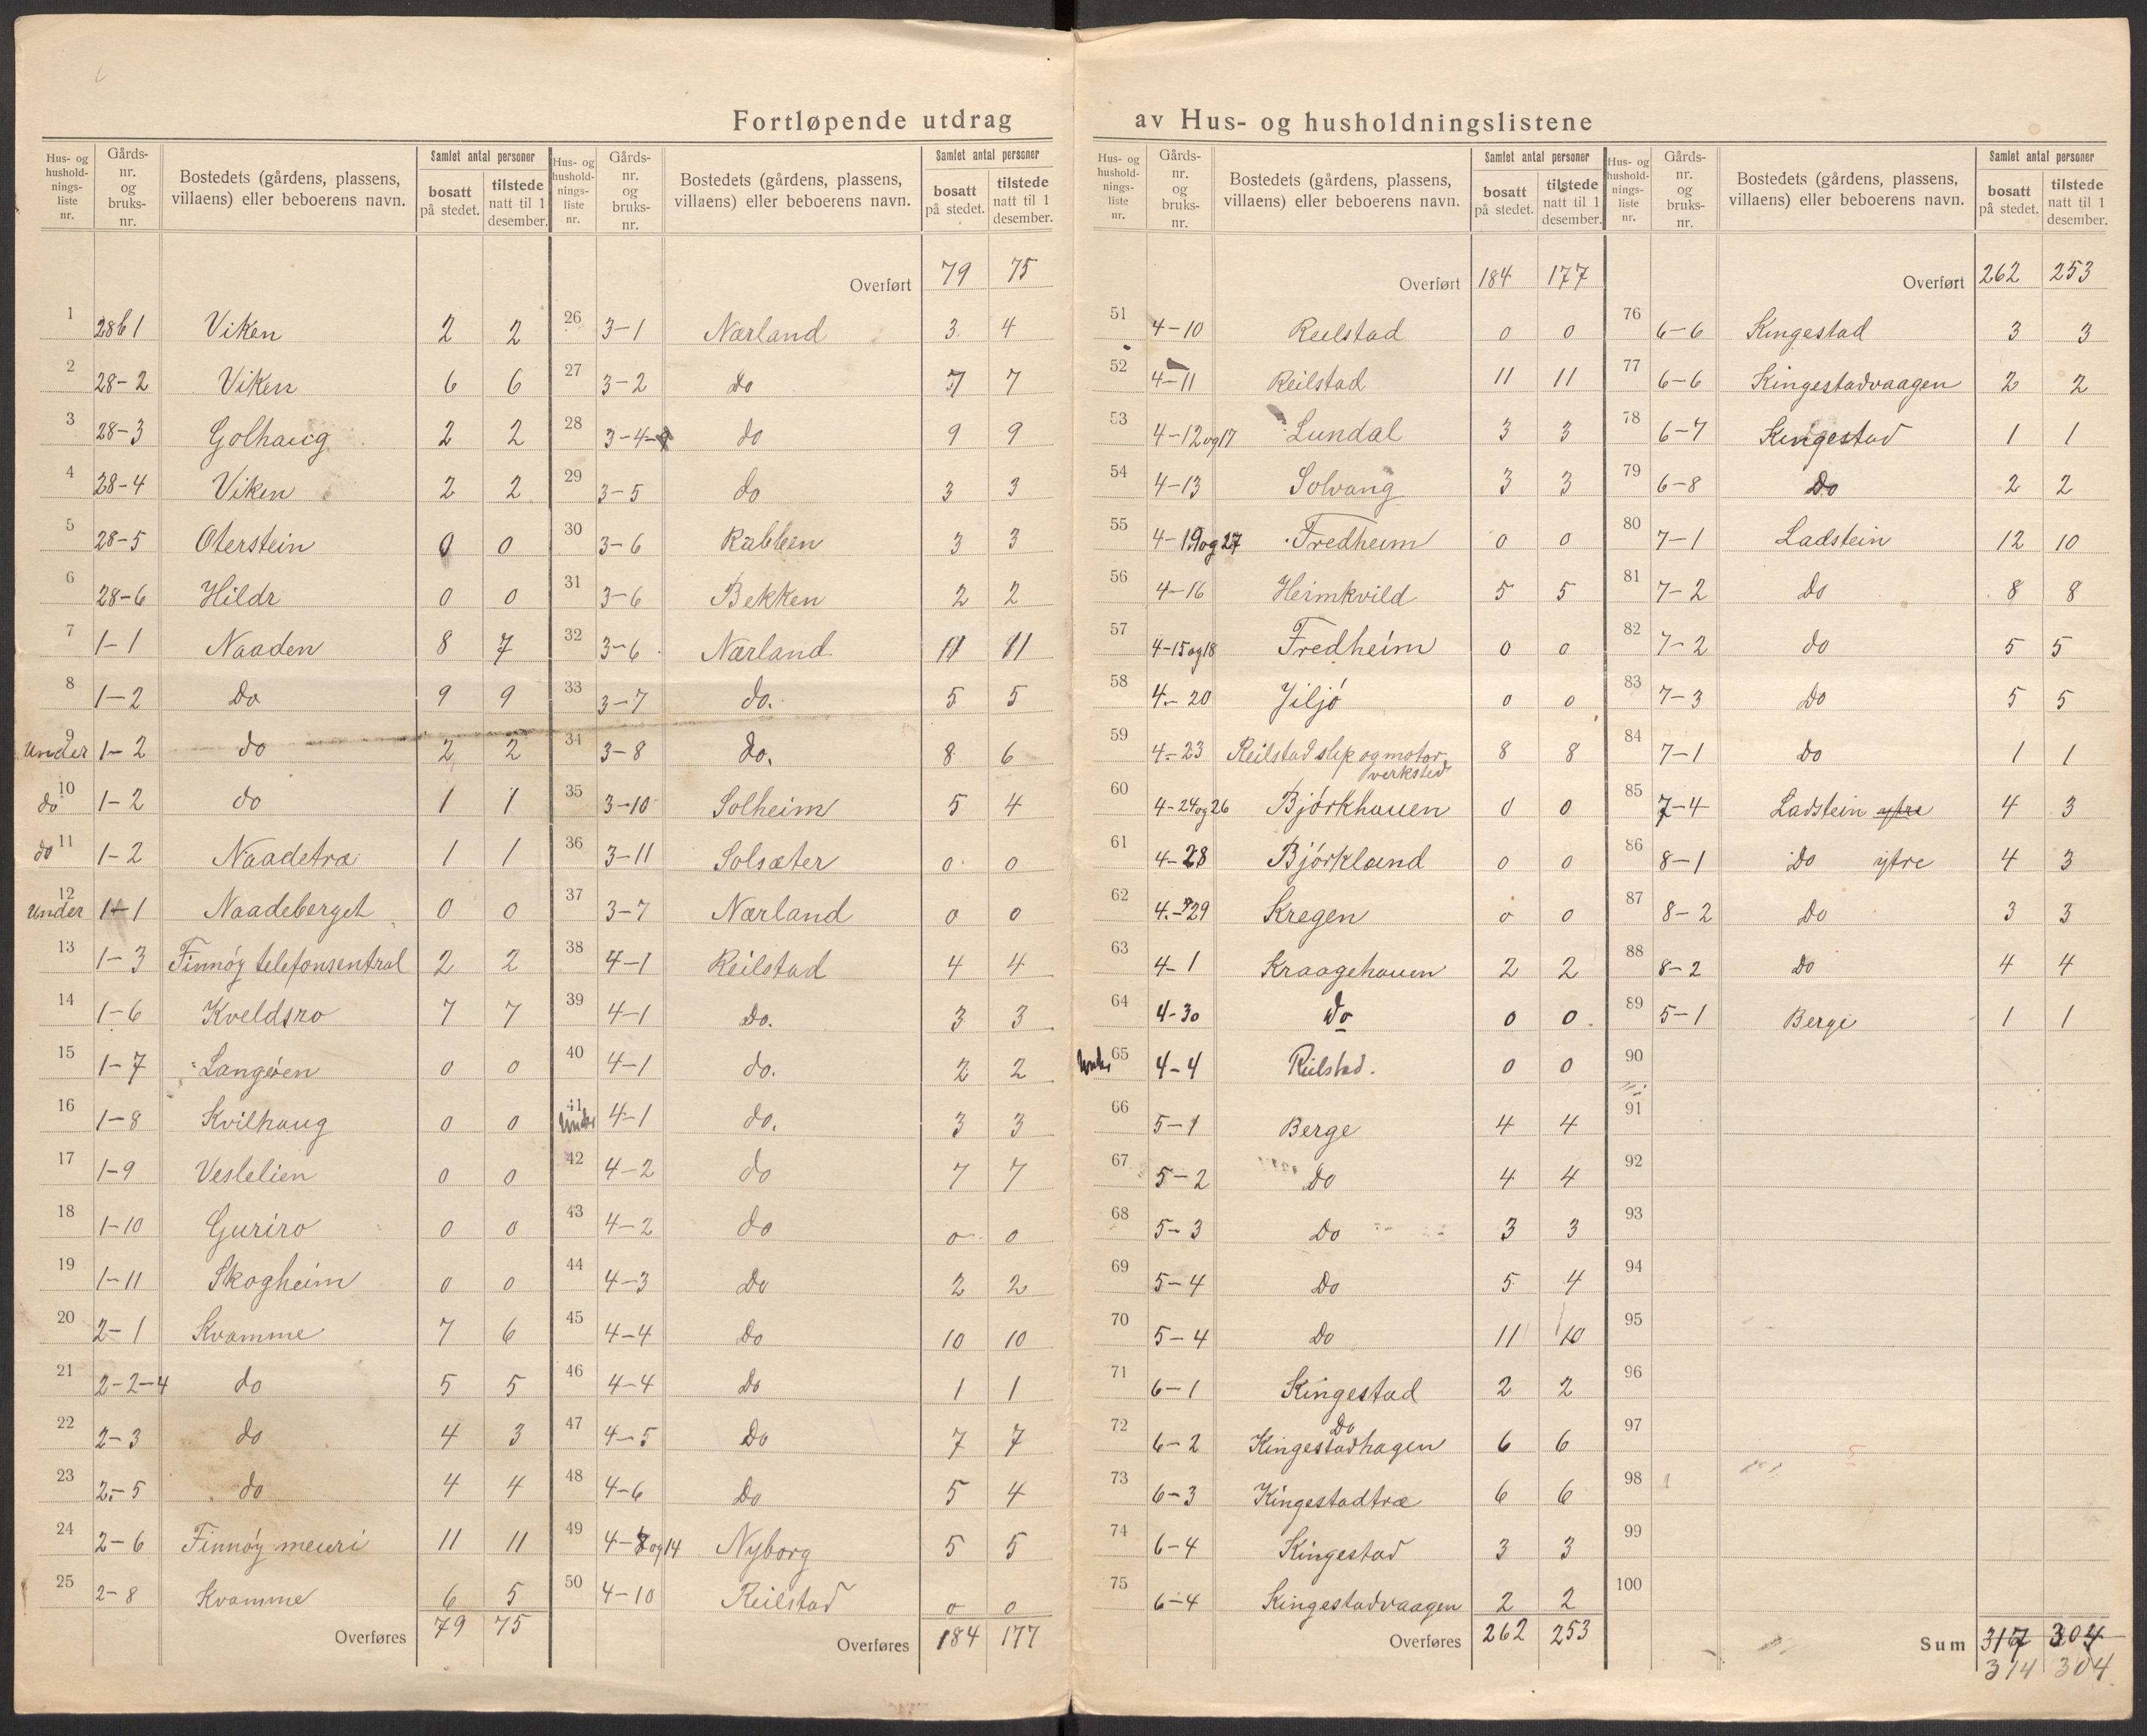 Fortløpende utdrag av Hus- og husholdningslistene
Hus- og husholdnings-liste nr. | Gårds-nr. og bruks-nr. | Bostedets (gårdens, plassens, villaens) eller beboerens navn. | Samlet antal personer | bosatt på stedet. | tilstede natt til 1 desember.
1 2861 Viken 2 2
2 28-2 Viken 6 6
3 28-3 Golhaug 2 2
4 28-4 Viken 2 2
5 28-5 Oterstein 0 0
6 28-6 Hildr 0 0
7 1-1 Naaden 8 7
8 1-2 Do 9 9
9 Under 1-2 do 2 2
10 do 1-2 do 1 1
11 do 1-2 Naadetræ 1 1
12 Under 1-1 Naadeberget 0 0
13 1-3 Finnøy telefonsentral 2 2
14 1-6 Kveldsro 7 7
15 1-7 Langøen 0 0
16 1-8 Kvilhaug 0 0
17 1-9 Veslelien 0 0
18 1-10 Guriro 0 0
19 1-11 Skogheim 0 0
20 2-1 Kvamme 7 6
21 2-2-4 do 5 5
22 2-3 do 4 3
23 2-5 do 4 4
24 2-6 Finnøy meieri 11 11
25 2-8 Kvamme 6 5
Overføres 79 75
Hus- og husholdnings-liste nr. | Gårds-nr. og bruks-nr. | Bostedets (gårdens, plassens, villaens) eller beboerens navn. | Samlet antal personer | bosatt på stedet. | tilstede natt til 1 desember.
Overført 79 75
26 3-1 Nærland 3 4
27 3-2 Do 7 7
28 3-4-9 do 9 9
29 3-5 do 3 3
30 3-6 Rabben 3 3
31 3-6 Bekken 2 2
32 3-6 Nærland 11 11
33 3-7 do. 5 5
34 3-8 do. 8 6
35 3-10 Solheim 5 4
36 3-11 Solsæter 0 0
37 3-7 Nærland 0 0
38 4-1 Reilstad 4 4
39 4-1 Do. 3 3
40 4-1 do. 2 2
41 Under 4-1 do. 3 3
42 4-2 do 7 7
43 4-2 do 0 0
44 4-3 Do 2 2
45 4-4 Do 10 10
46 4-4 Do 1 1
47 4-5 Do 7 7
48 4-6 Do 5 4
49 4-8og14 Nyborg 5 5
50 4-10 Reilstad 0 0
Overføres 184 177
Hus- og husholdnings-liste nr. | Gårds-nr. og bruks-nr. | Bostedets (gårdens, plassens, villaens) eller beboerens navn. | Samlet antal personer | bosatt på stedet. | tilstede natt til 1 desember.
Overført 184 177
51 4-10 Reilstad 0 0
52 4-11 Reilstad 11 11
53 4-12og17 Lundal 3 3
54 4-13 Solvang 3 3
55 4-19og27 Fredheim 0 0
56 4-16 Heimkvild 5 5
57 4-15og18 Fredheim 0 0
58 4-20 Jiljó 0 0
59 4-23 Reilstad slip og motor verksted 8 8
60 4-24og26 Bjørkhauen 0 0
61 4-28 Bjørkland 0 0
62 4-29 Kregen 0 0
63 4-1 Kraagehauen 2 2
64 4-30 Do 0 0
65 Under 4-4 Reilstad. 0 0
66 5-1 Berge 4 4
67 5-2 Do 4 4
68 5-3 Do 3 3
69 5-4 Do 5 4
70 5-4 Do 11 10
71 6-1 Kingestad 2 2
72 6-2 Do Kingestadhagen 6 6
73 6-3 Kingestadtræ 6 6
74 6-4 Kingestad 3 3
75 6-4 Kingestadvaagen 2 2
Overføres 262 253
Hus- og husholdnings-liste nr. | Gårds-nr. og bruks-nr. | Bostedets (gårdens, plassens, villaens) eller beboerens navn. | Samlet antal personer | bosatt på stedet. | tilstede natt til 1 desember.
Overført 262 253
76 6-6 Kingestad 3 3
77 6-6 Kingestadvaagen 2 2
78 6-7 Kingestad 1 1
79 6-8 Do 2 2
80 7-1 Ladstein 12 10
81 7-2 do 8 8
82 7-2 do 5 5
83 7-3 Do 5 5
84 7-1 Do 1 1
85 7-4 Ladstein ytre 4 3
86 8-1 Do ytre 4 3
87 8-2 Do 3 3
88 8-2 Do 4 4
89 5-1 Berge 1 1
90
91
92
93
94
95
96
97
98
99
100
Sum 317 304
314 304